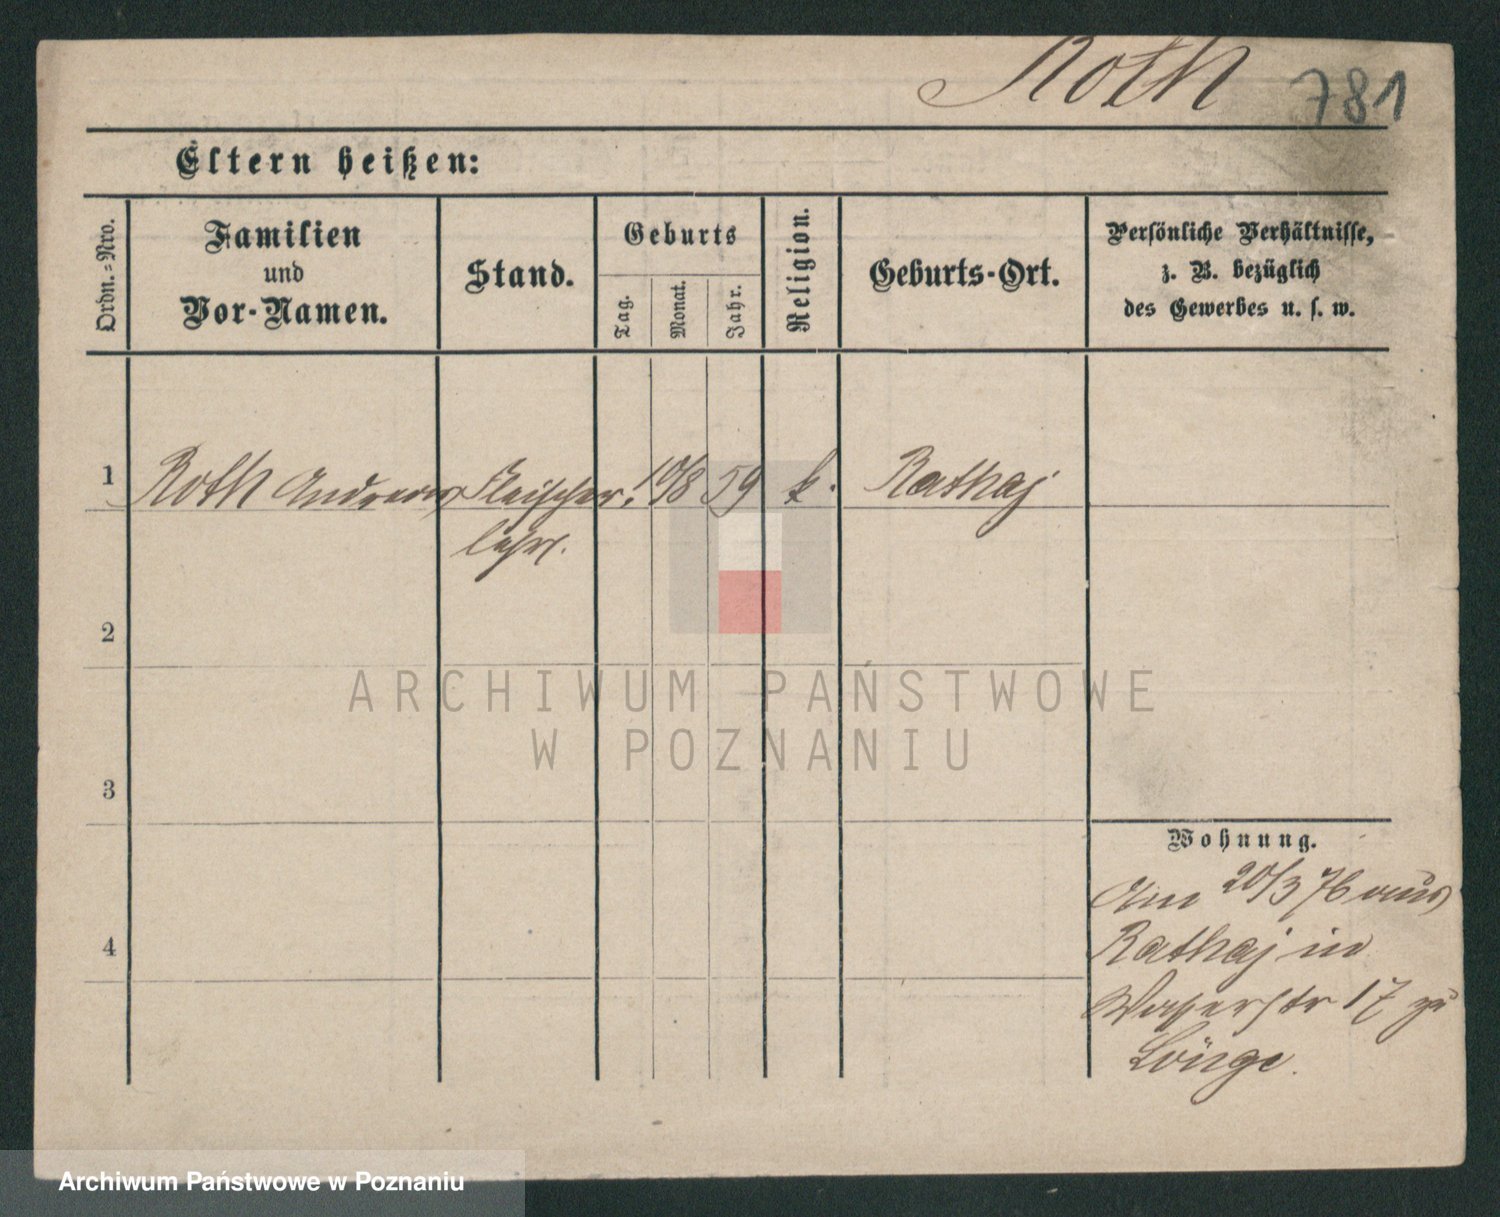 Roth 781
Eltern heißen:
Ordn.=Nro.
Familien
und
Vor-Namen.
Stand.
Geburts
Tag.
Monat.
Jahr.
Religion.
Geburts-Ort.
Persönliche Verhältnisse,
z. B. bezüglich
des Gewerbes u. s. w.
1 Roth Andreas Fleischer. 10/8 59 k. Rathaj
lehrl.
2
ARCHIWUM PAŃSTWOWE
W POZNANIU
3
Wohnung.
Am 20/3 76 aus
4
Rathaj in
Wasserstr 17 zu
Archiwum Państwowe w Poznaniu